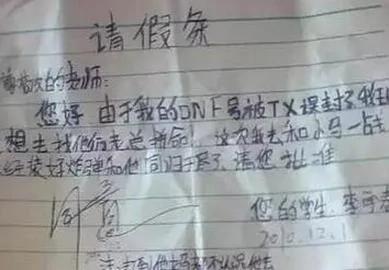 请假条
尊敬的老师:
您好 由于我的DNF号被TX误封了.我
想去找他们老总拼命! 这次我去和小马一战
经装好炸弹和他同归于尽了.请您批准
您的学生:李
2010.12.1